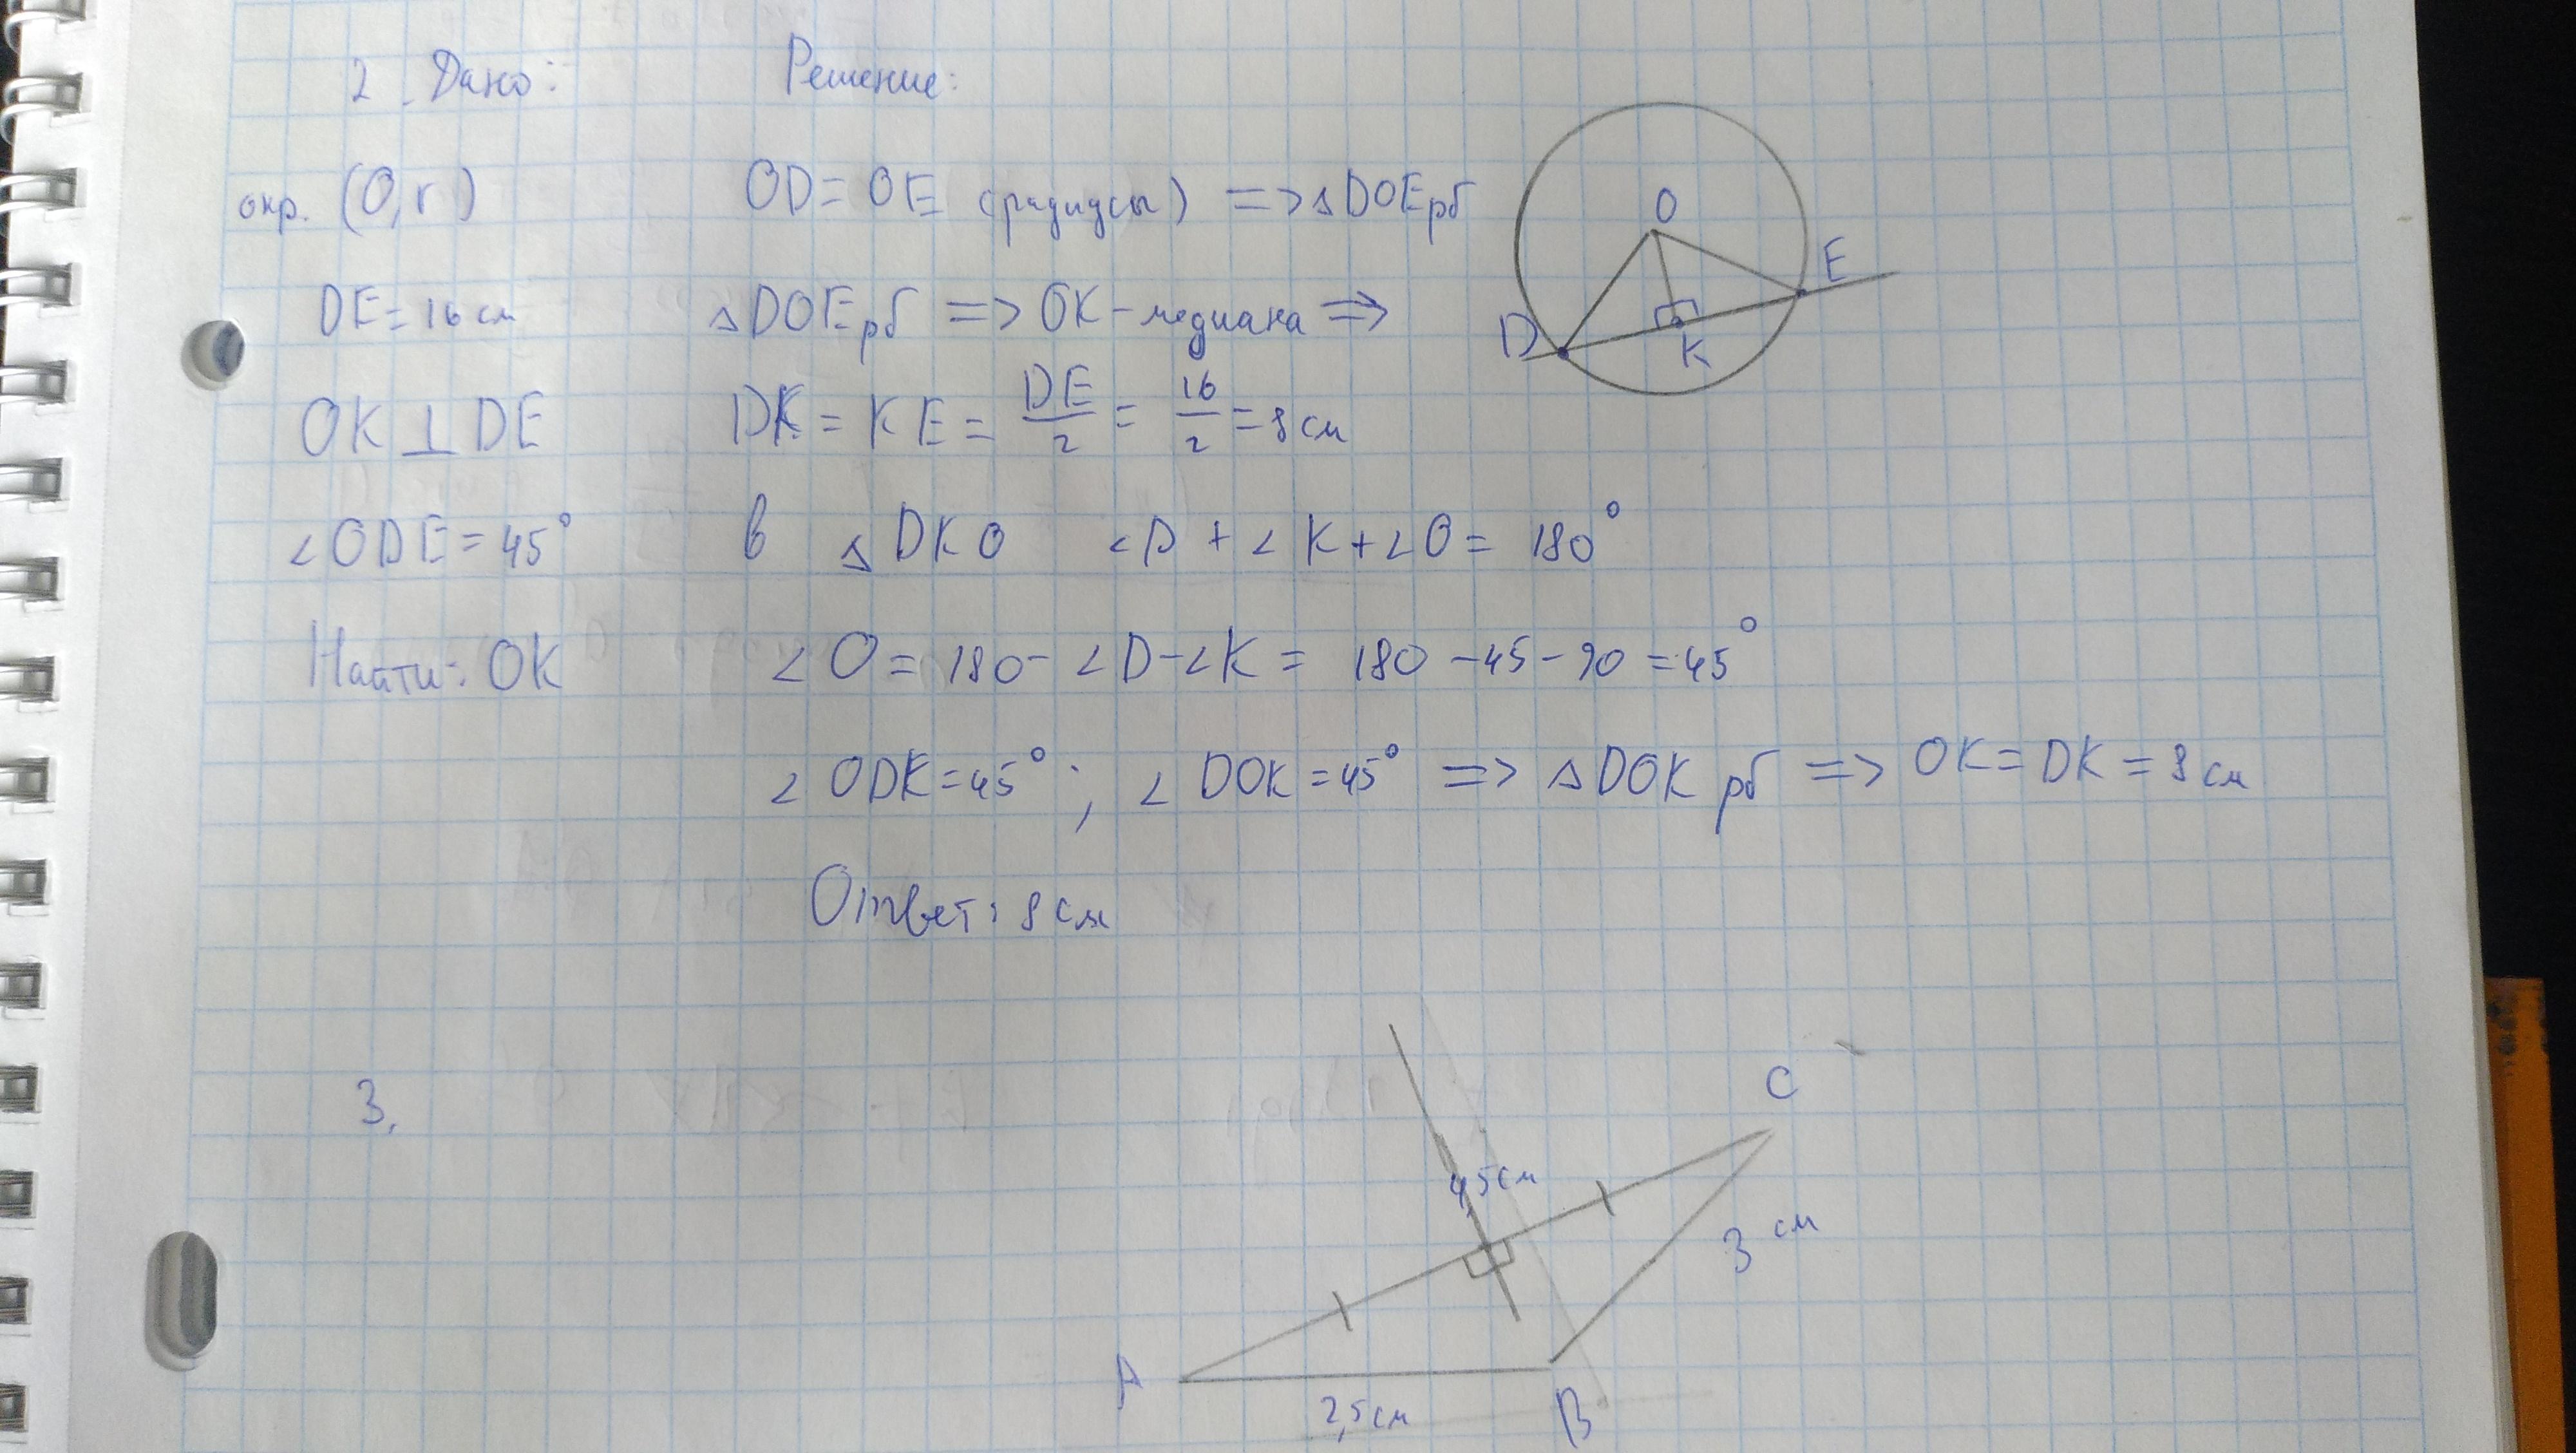 2. Дано: Решение:
окр. (O, r) OD = OE (радиусы) => △DOE рб
DE = 16 см △DOE рб => OK - медиана =>
OK ⊥ DE DK = KE = DE/2 = 16/2 = 8 см
∠ODE = 45° В △DKO ∠D + ∠K + ∠O = 180°
Найти: OK ∠O = 180 - ∠D - ∠K = 180 - 45 - 90 = 45°
∠ODK = 45°; ∠DOK = 45° => △DOK рб => OK = DK = 8 см
Ответ: 8 см
O
E
D
K
3.
C
4,5 см
3 см
A
2,5 см
B